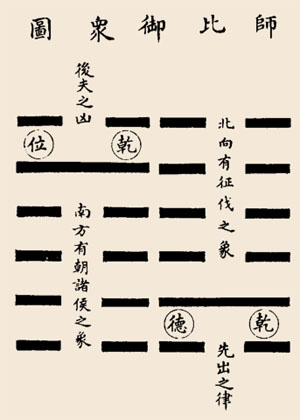 師比御衆圖
北向有征伐之象
乾德
先出之律
後夫之凶
乾位
南方有朝諸侯之象